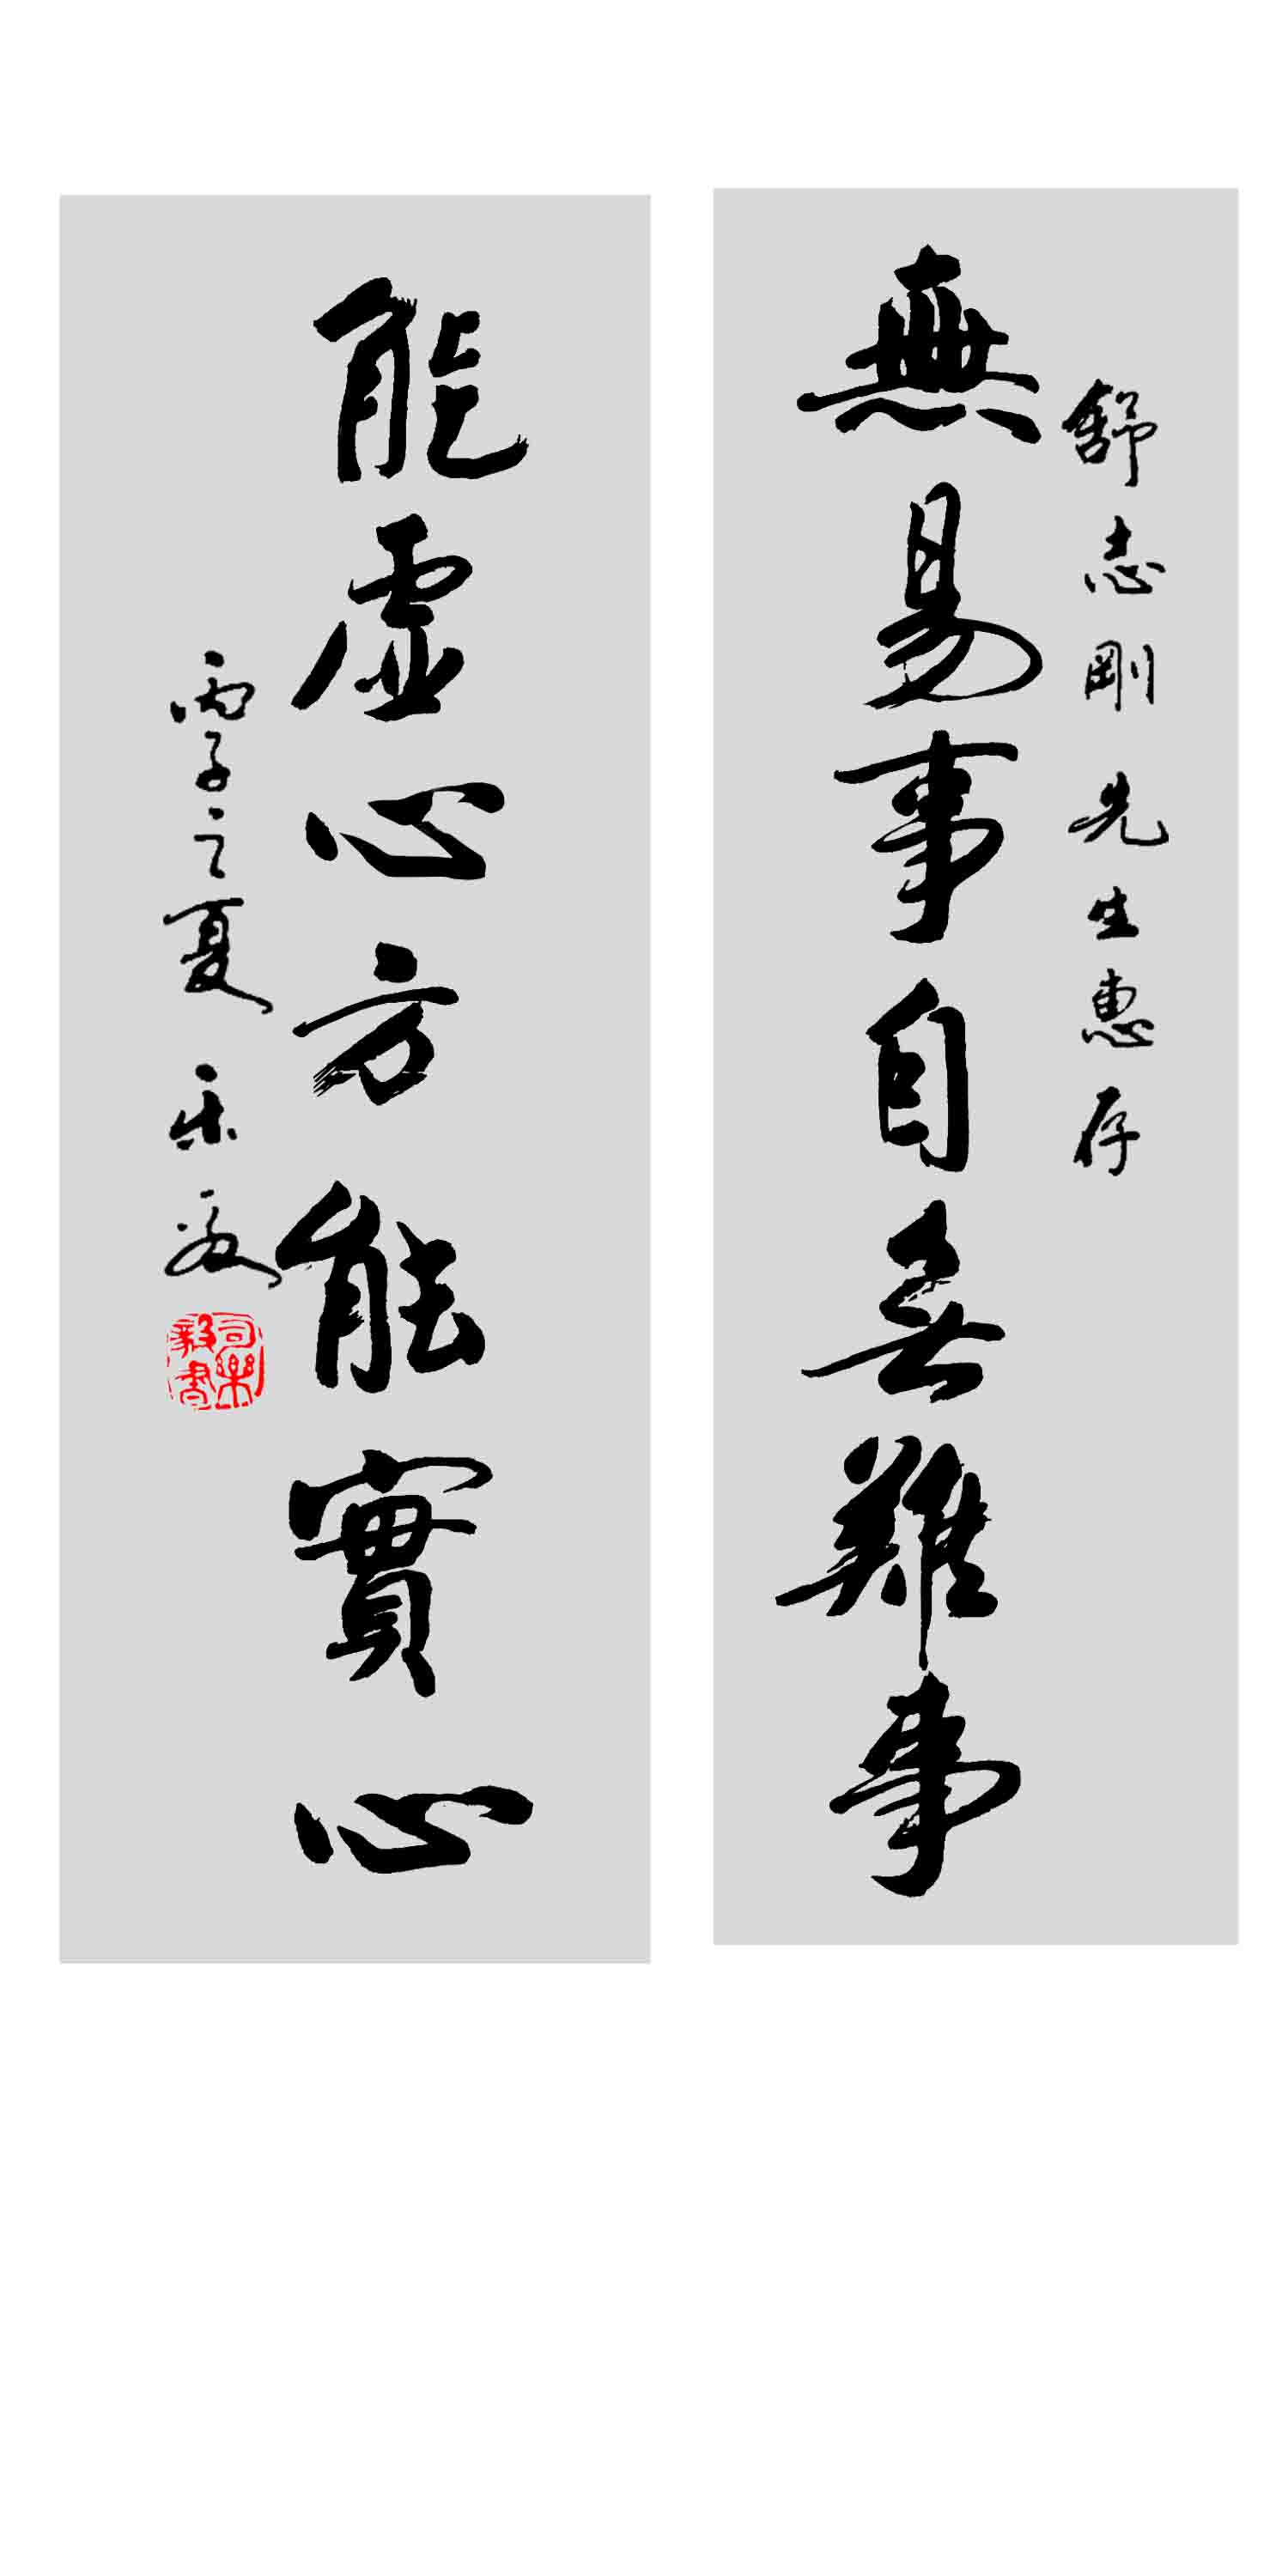 舒志剛先生惠存
無易事自無難事
能虛心方能實心
丙子之夏 乐毅
司樂毅書